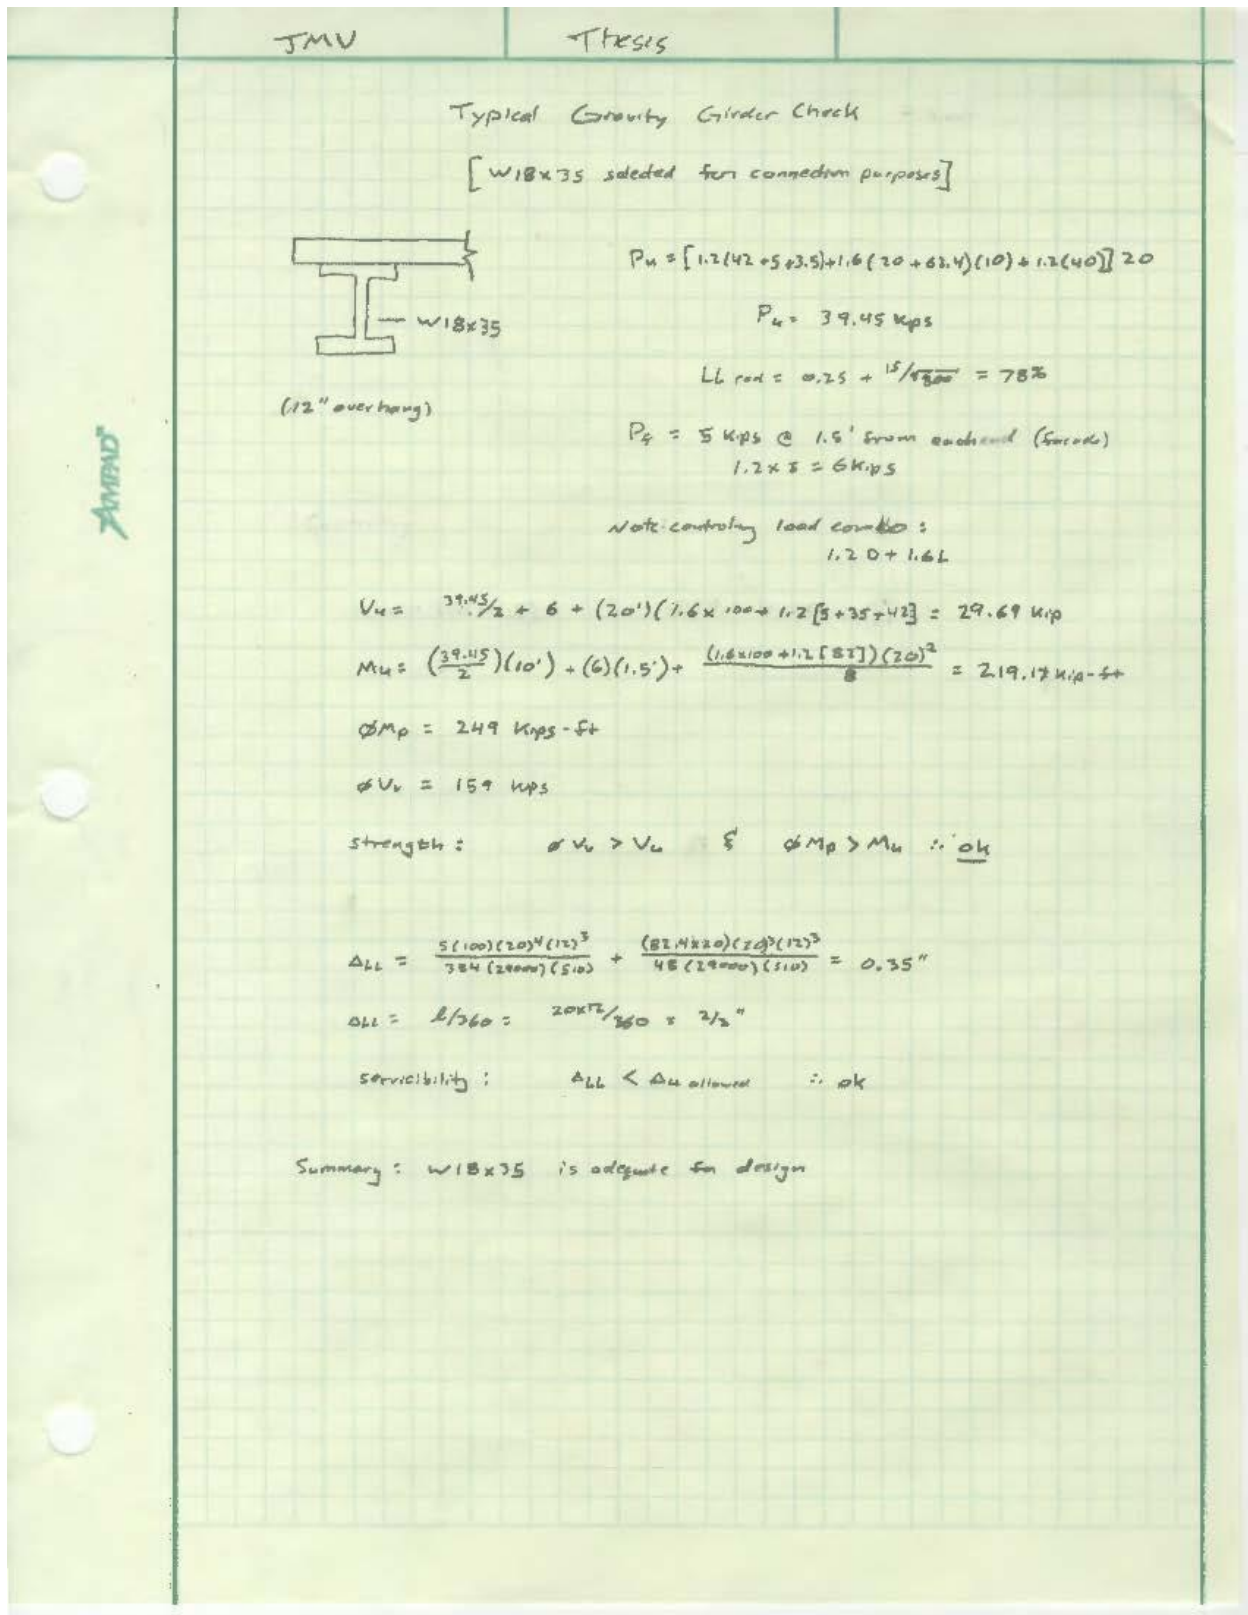 JMV Thesis
Typical Gravity Girder Check
[W18x35 selected for connection purposes]
Pu = [1.2(42+5+3.5)+1.6(20+62.4)(10)+1.2(40)] 20
W18x35
Pu = 39.45 kips
LL red = 0.25 + 15/√800 = 78%
(12" overhang)
Pf = 5 kips @ 1.5' from each end (facade)
1.2 x 5 = 6 kips
AMPAD
Note controling load combo:
1.2D + 1.6L
Vu = 39.45/2 + 6 + (20')(1.6x100+1.2[5+35+42] = 29.69 kip
Mu = (39.45/2)(10') + (6)(1.5') + (1.6x100+1.2[82])(20)²/8 = 219.17 kip-ft
ϕMp = 249 kips-ft
ϕVv = 159 kips
strength: ϕVv > Vu & ϕMp > Mu ∴ ok
ΔLL = 5(100)(20)⁴(12)³/384(29000)(510) + (82.4x20)(20)³(12)³/48(29000)(510) = 0.35"
ΔLL = l/360 = 20x12/360 = 2/3"
servicibility: ΔLL < ΔLL allowed ∴ ok
Summary: W18x35 is adequate for design